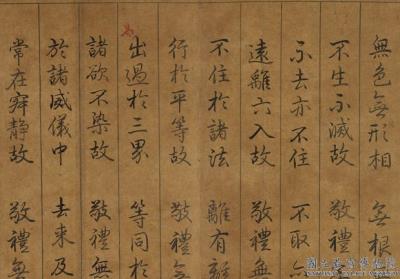 無色無形相 無根
不生不滅故 敬禮無
不去亦不住 不取
遠離六入故 敬禮無
不住於諸法 離有離
行於平等故 敬禮無
出過於三界 等同於
諸欲不染故 敬禮無
於諸威儀中 去來及
常在寂靜故 敬禮無